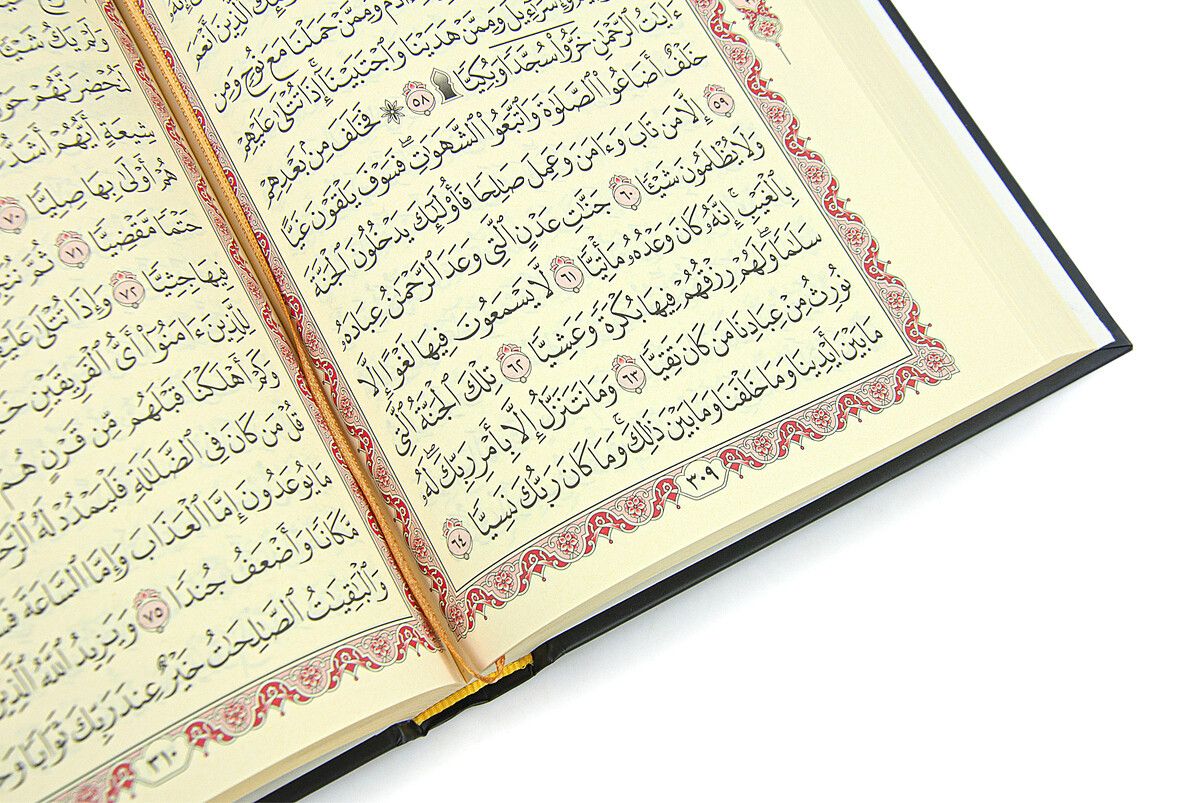 ٱلَّذِينَ أَنْعَمَ
ءَادَمَ وَمِمَّنْ حَمَلْنَا مَعَ نُوحٍ وَمِن
وَإِسْرَٰٓءِيلَ وَمِمَّنْ هَدَيْنَا وَٱجْتَبَيْنَآ إِذَا تُتْلَىٰ عَلَيْهِمْ
ءَايَٰتُ ٱلرَّحْمَٰنِ خَرُّوا۟ سُجَّدًا وَبُكِيًّا ۩ ٥٨ ۞ فَخَلَفَ مِنۢ بَعْدِهِمْ
خَلْفٌ أَضَاعُوا۟ ٱلصَّلَوٰةَ وَٱتَّبَعُوا۟ ٱلشَّهَوَٰتِ ۖ فَسَوْفَ يَلْقَوْنَ غَيًّا
٥٩ إِلَّا مَن تَابَ وَءَامَنَ وَعَمِلَ صَٰلِحًا فَأُو۟لَٰٓئِكَ يَدْخُلُونَ ٱلْجَنَّةَ
وَلَا يُظْلَمُونَ شَيْـًٔا ٦٠ جَنَّٰتِ عَدْنٍ ٱلَّتِى وَعَدَ ٱلرَّحْمَٰنُ عِبَادَهُۥ
بِٱلْغَيْبِ ۚ إِنَّهُۥ كَانَ وَعْدُهُۥ مَأْتِيًّا ٦١ لَّا يَسْمَعُونَ فِيهَا لَغْوًا إِلَّا
سَلَٰمًا ۖ وَلَهُمْ رِزْقُهُمْ فِيهَا بُكْرَةً وَعَشِيًّا ٦٢ تِلْكَ ٱلْجَنَّةُ ٱلَّتِى
نُورِثُ مِنْ عِبَادِنَا مَن كَانَ تَقِيًّا ٦٣ وَمَا نَتَنَزَّلُ إِلَّا بِأَمْرِ رَبِّكَ ۖ لَهُۥ
مَا بَيْنَ أَيْدِينَا وَمَا خَلْفَنَا وَمَا بَيْنَ ذَٰلِكَ ۚ وَمَا كَانَ رَبُّكَ نَسِيًّا ٦٤
٣٠٩
وَلَمْ يَكُ شَيْـًٔا
لَنُحْضِرَنَّهُمْ
شِيعَةٍ أَيُّهُمْ أَشَدُّ
هُمْ أَوْلَىٰ بِهَا صِلِيًّا ٧٠
حَتْمًا مَّقْضِيًّا ٧١ ثُمَّ
فِيهَا جِثِيًّا ٧٢ وَإِذَا تُتْلَىٰ
لِلَّذِينَ ءَامَنُوٓا۟ أَىُّ ٱلْفَرِيقَيْنِ
وَكَمْ أَهْلَكْنَا قَبْلَهُم مِّن قَرْنٍ هُمْ
قُلْ مَن كَانَ فِى ٱلضَّلَٰلَةِ فَلْيَمْدُدْ لَهُ
مَا يُوعَدُونَ إِمَّا ٱلْعَذَابَ وَإِمَّا ٱلسَّاعَةَ
مَّكَانًا وَأَضْعَفُ جُندًا ٧٥ وَيَزِيدُ ٱللَّهُ ٱلَّذِينَ
وَٱلْبَٰقِيَٰتُ ٱلصَّٰلِحَٰتُ خَيْرٌ عِندَ رَبِّكَ ثَوَابًا
٣١٠